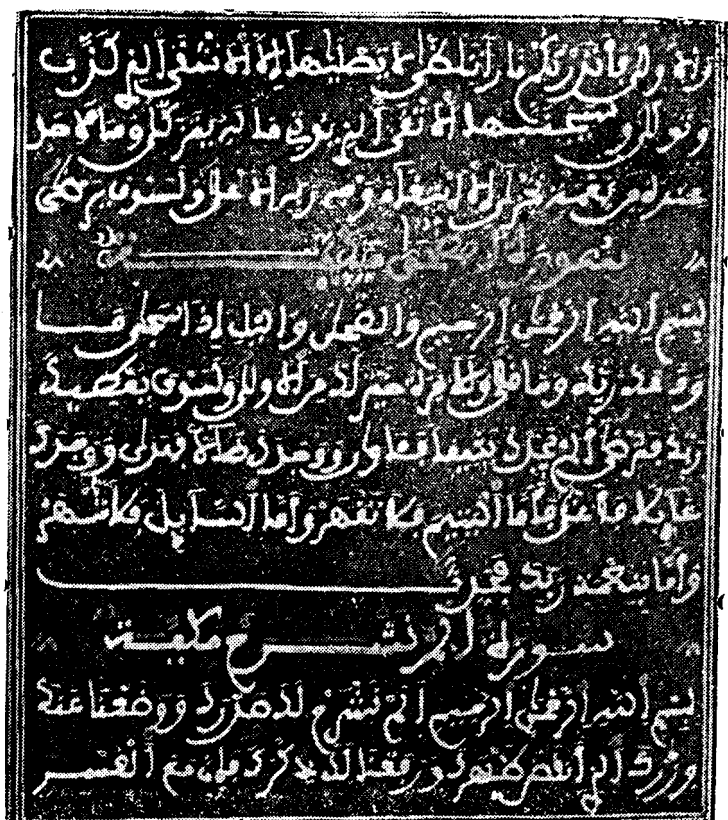 والاولى فأنذرتكم نارا تلظى لا يصليها إلا الأشقى الذي كذب
وتولى وسيجنبها الأتقى الذي يوتي ماله يتزكى وما لأحد
عنده من نعمة تجزى إلا ابتغاء وجه ربه الأعلى ولسوف يرضى
سورة والضحى مكية
بسم الله الرحمن الرحيم والضحى واليل إذا سجى ما
ودعك ربك وما قلى وللاخرة خير لك من الاولى ولسوف يعطيك
ربك فترضى ألم يجدك يتيما فئاوى ووجدك ضالا فهدى ووجدك
عايلا فأغنى فأما اليتيم فلا تقهر وأما السايل فلا تنهر
وأما بنعمة ربك فحدث
سورة ألم نشرح مكية
بسم الله الرحمن الرحيم ألم نشرح لك صدرك ووضعنا عنك
وزرك الذي أنقض ظهرك ورفعنا لك ذكرك فإن مع العسر